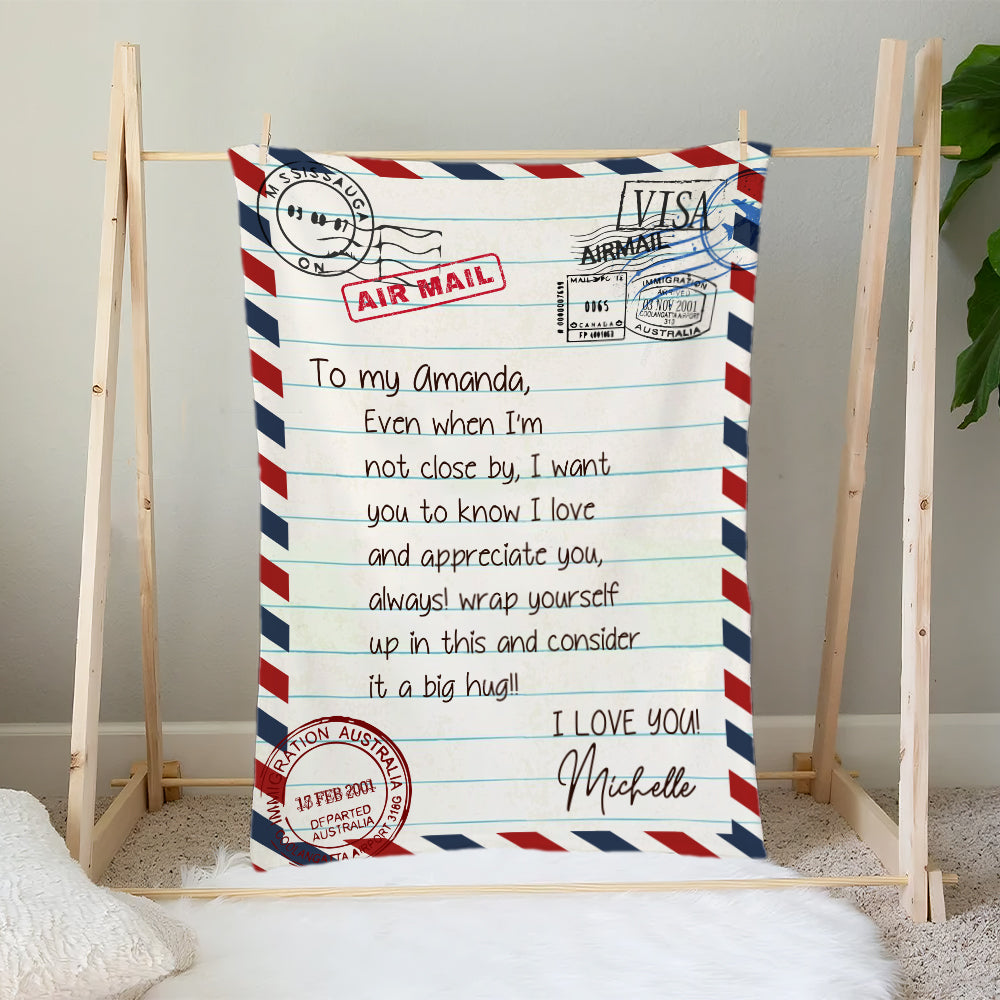 MSSISSAUGA
ON
AIR MAIL
VISA
AIRMAIL
MAIL > PC 12
0065
CANADA
FP 4001063
# 0000007699
IMMIGRATION
ARRIVED
03 NOV 2001
COOLANGATTA AIRPORT
313
AUSTRALIA
To my Amanda,
Even when I'm
not close by, I want
you to know I love
and appreciate you,
always! wrap yourself
up in this and consider
it a big hug!!
I LOVE YOU!
Michelle
IMMIGRATION AUSTRALIA
FEB 2001
DEPARTED
AUSTRALIA
COOLANGATTA AIRPORT 318G